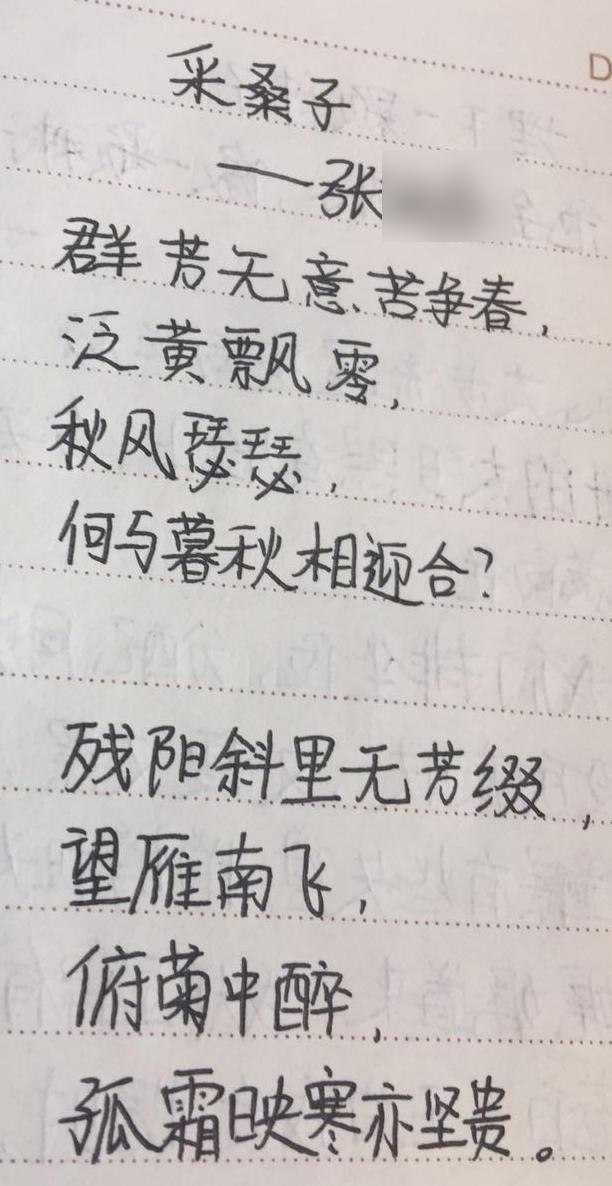 D
采桑子
——张
群芳无意苦争春，
泛黄飘零，
秋风瑟瑟，
何与暮秋相迎合？
残阳斜里无芳缀，
望雁南飞，
俯菊中醉，
孤霜映寒亦坚贵。